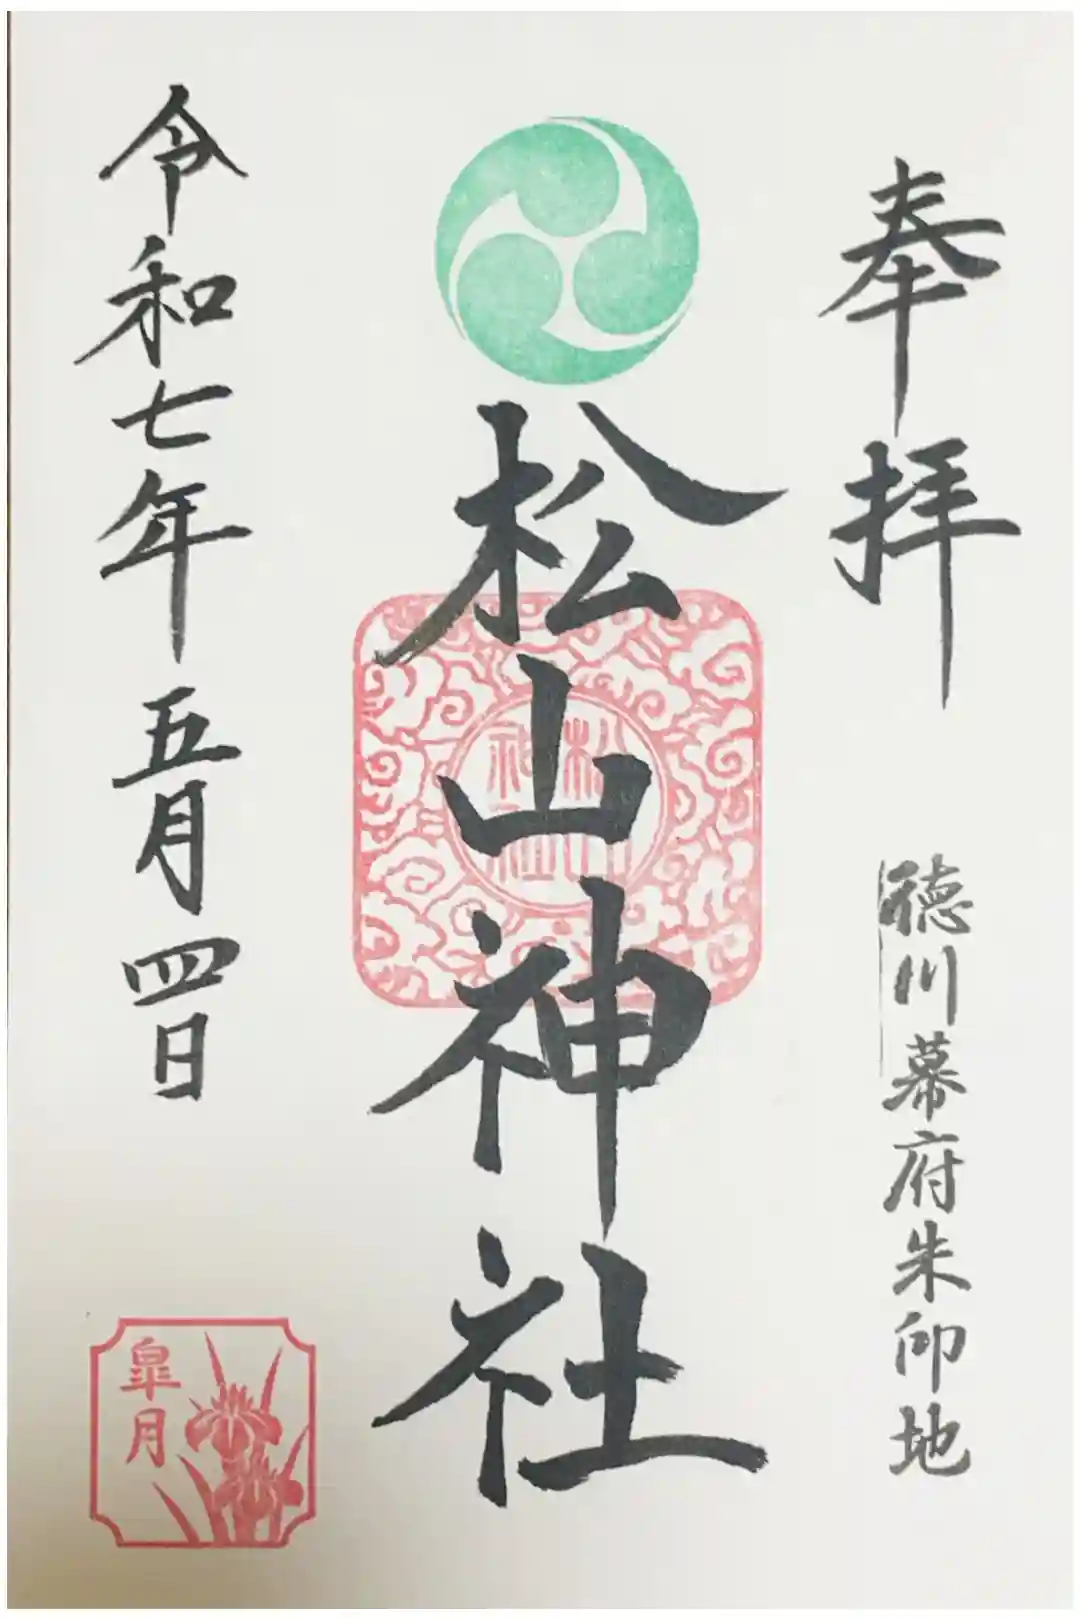 奉拝
徳川幕府朱印地
松山神社
松山
神社
令和七年五月四日
皐月